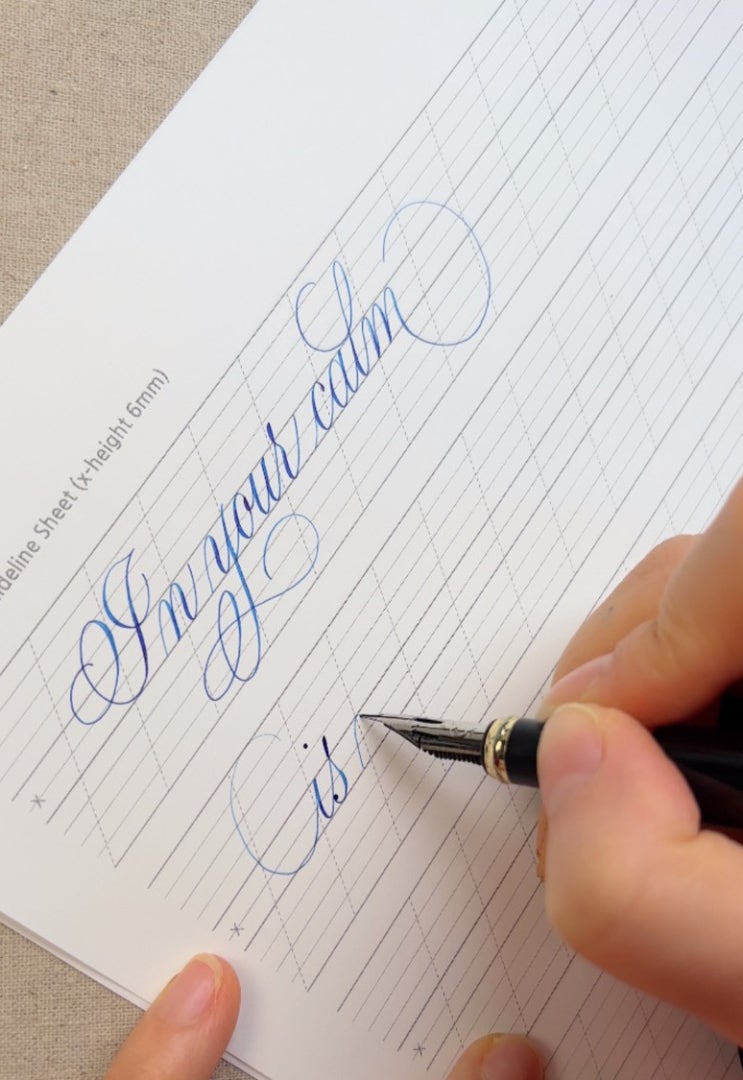 deline Sheet (x-height 6mm)
In your calm
is